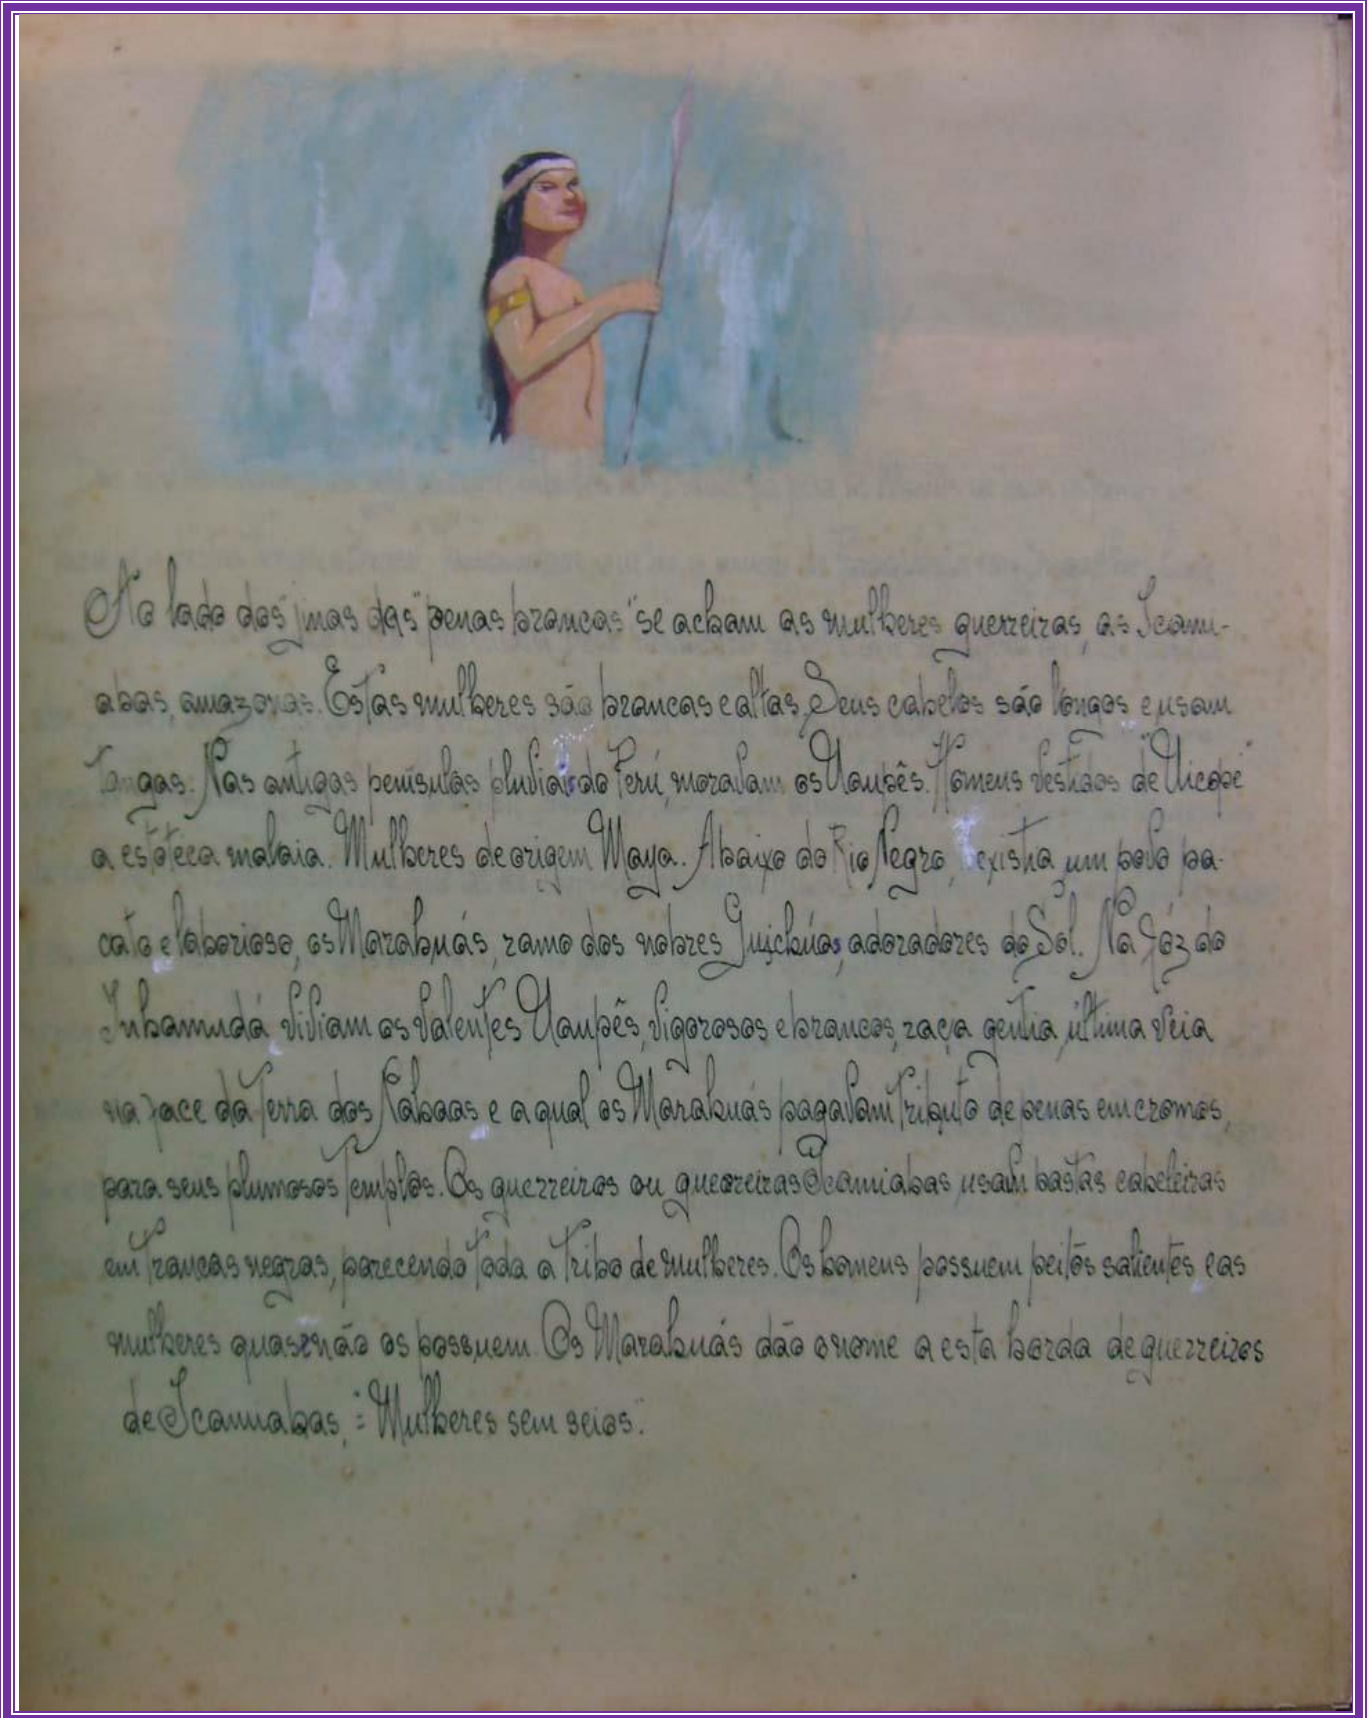 Ao lado dos "jinas das "penas brancas" se acham as mulheres guerreiras, as Icami-
abas, amazonas. Estas mulheres são brancas e altas, Seus cabelos são longos e usam
Tangas. Nas antigas penísulas pluviais do Perú, moravam os Uaupês. Homens vestidos de "Uicopé"
a estóteca malaia. Mulheres de origem Maya. Abaixo do Rio Negro, existia um povo pa-
cato e laborioso, os Marabuás, ramo dos nobres Guichúas, adoradores do Sol. Na fóz do
Inhamudá viviam os valentes Uaupês, vigorosos e brancos, raça gentia, última veia
na face da Terra dos Náhoas e a qual os Marabuás pagavam Tributo de penas em cromos,
para seus plumosos Templos. Os guerreiros ou guerreiras Icamiabas, usam bastas cabeleiras
em Trancas negras, parecendo toda a Tribo de mulheres. Os homens possuem peitos salientes, e as
mulheres quase não os possuem. Os Marabuás dão o nome a esta horda de guerreiros
de Icamiabas, = "Mulheres sem seios".